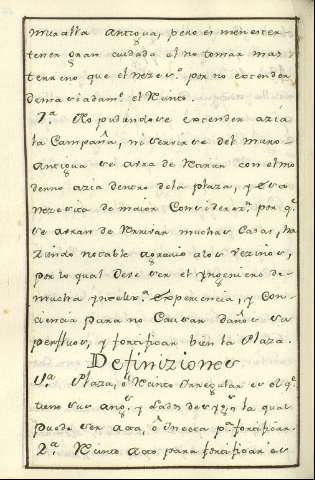 muralla antigua, pero es menester
tener gran cuidado el no tomar mas
terreno que el nezes.º por no estender
demasiadam.te el Rzinto.
7.ª No pudiendose estender azia
la Campaña, ni servirse del muro
Antiguo se avra de Razar con el mo
derno azia dentro dela plaza, y esta
nezesita de maior Considerazn. por q.e
se avran de Arruinar muchas Casas, ha
ziendo notable agravio alos vezinos,
por lo qual deve ser el Yngeniero de
mucha yntelix.ª Experiencia, y Con
ciencia para no Causar daños su
perfluos, y fortificar bien la Plaza.
Definiziones
1.ª Plaza, ô Rzinto Irregular es el q.e
tiene sus ang.s y Lados desyg.s la qual
puede ser apta, ô Inepta p.ª fortificar.
2.ª Rzinto Apto para fortificar es